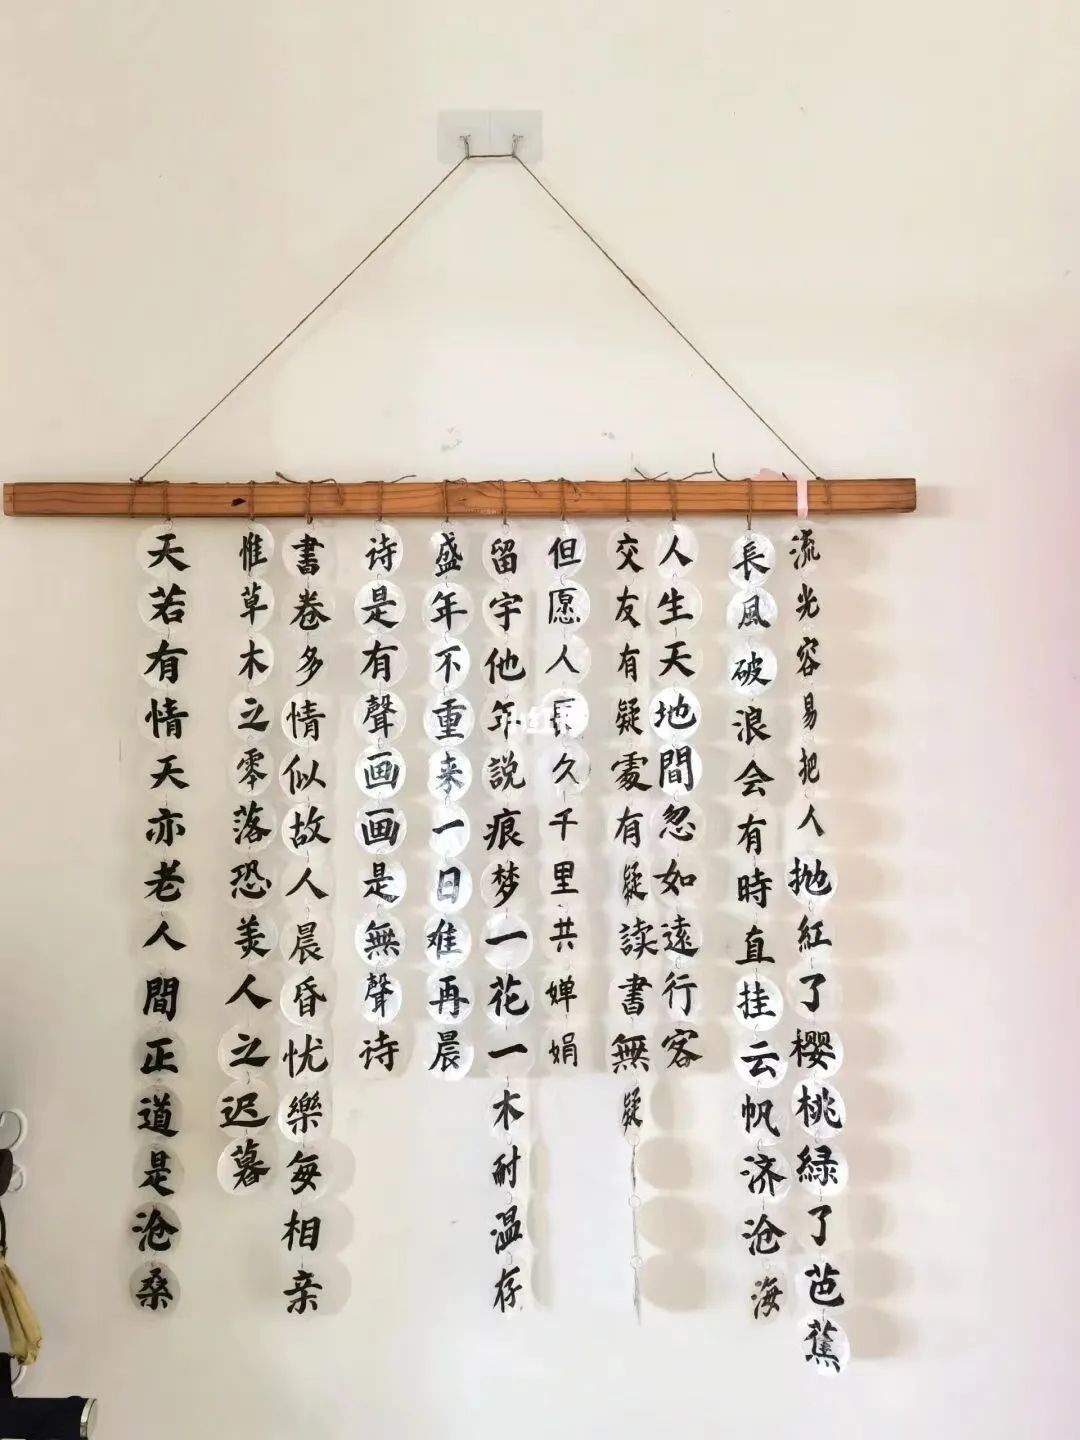 流光容易把人抛紅了樱桃緑了芭蕉
長風破浪会有時直挂云帆济沧海
人生天地間忽如遠行客
交友有疑處有疑读書無疑
但愿人長久千里共婵娟
留宇他年説痕梦一花一木耐温存
盛年不重来一日难再晨
诗是有聲画画是無聲诗
書卷多情似故人晨昏忧樂每相亲
惟草木之零落恐美人之迟暮
天若有情天亦老人間正道是沧桑